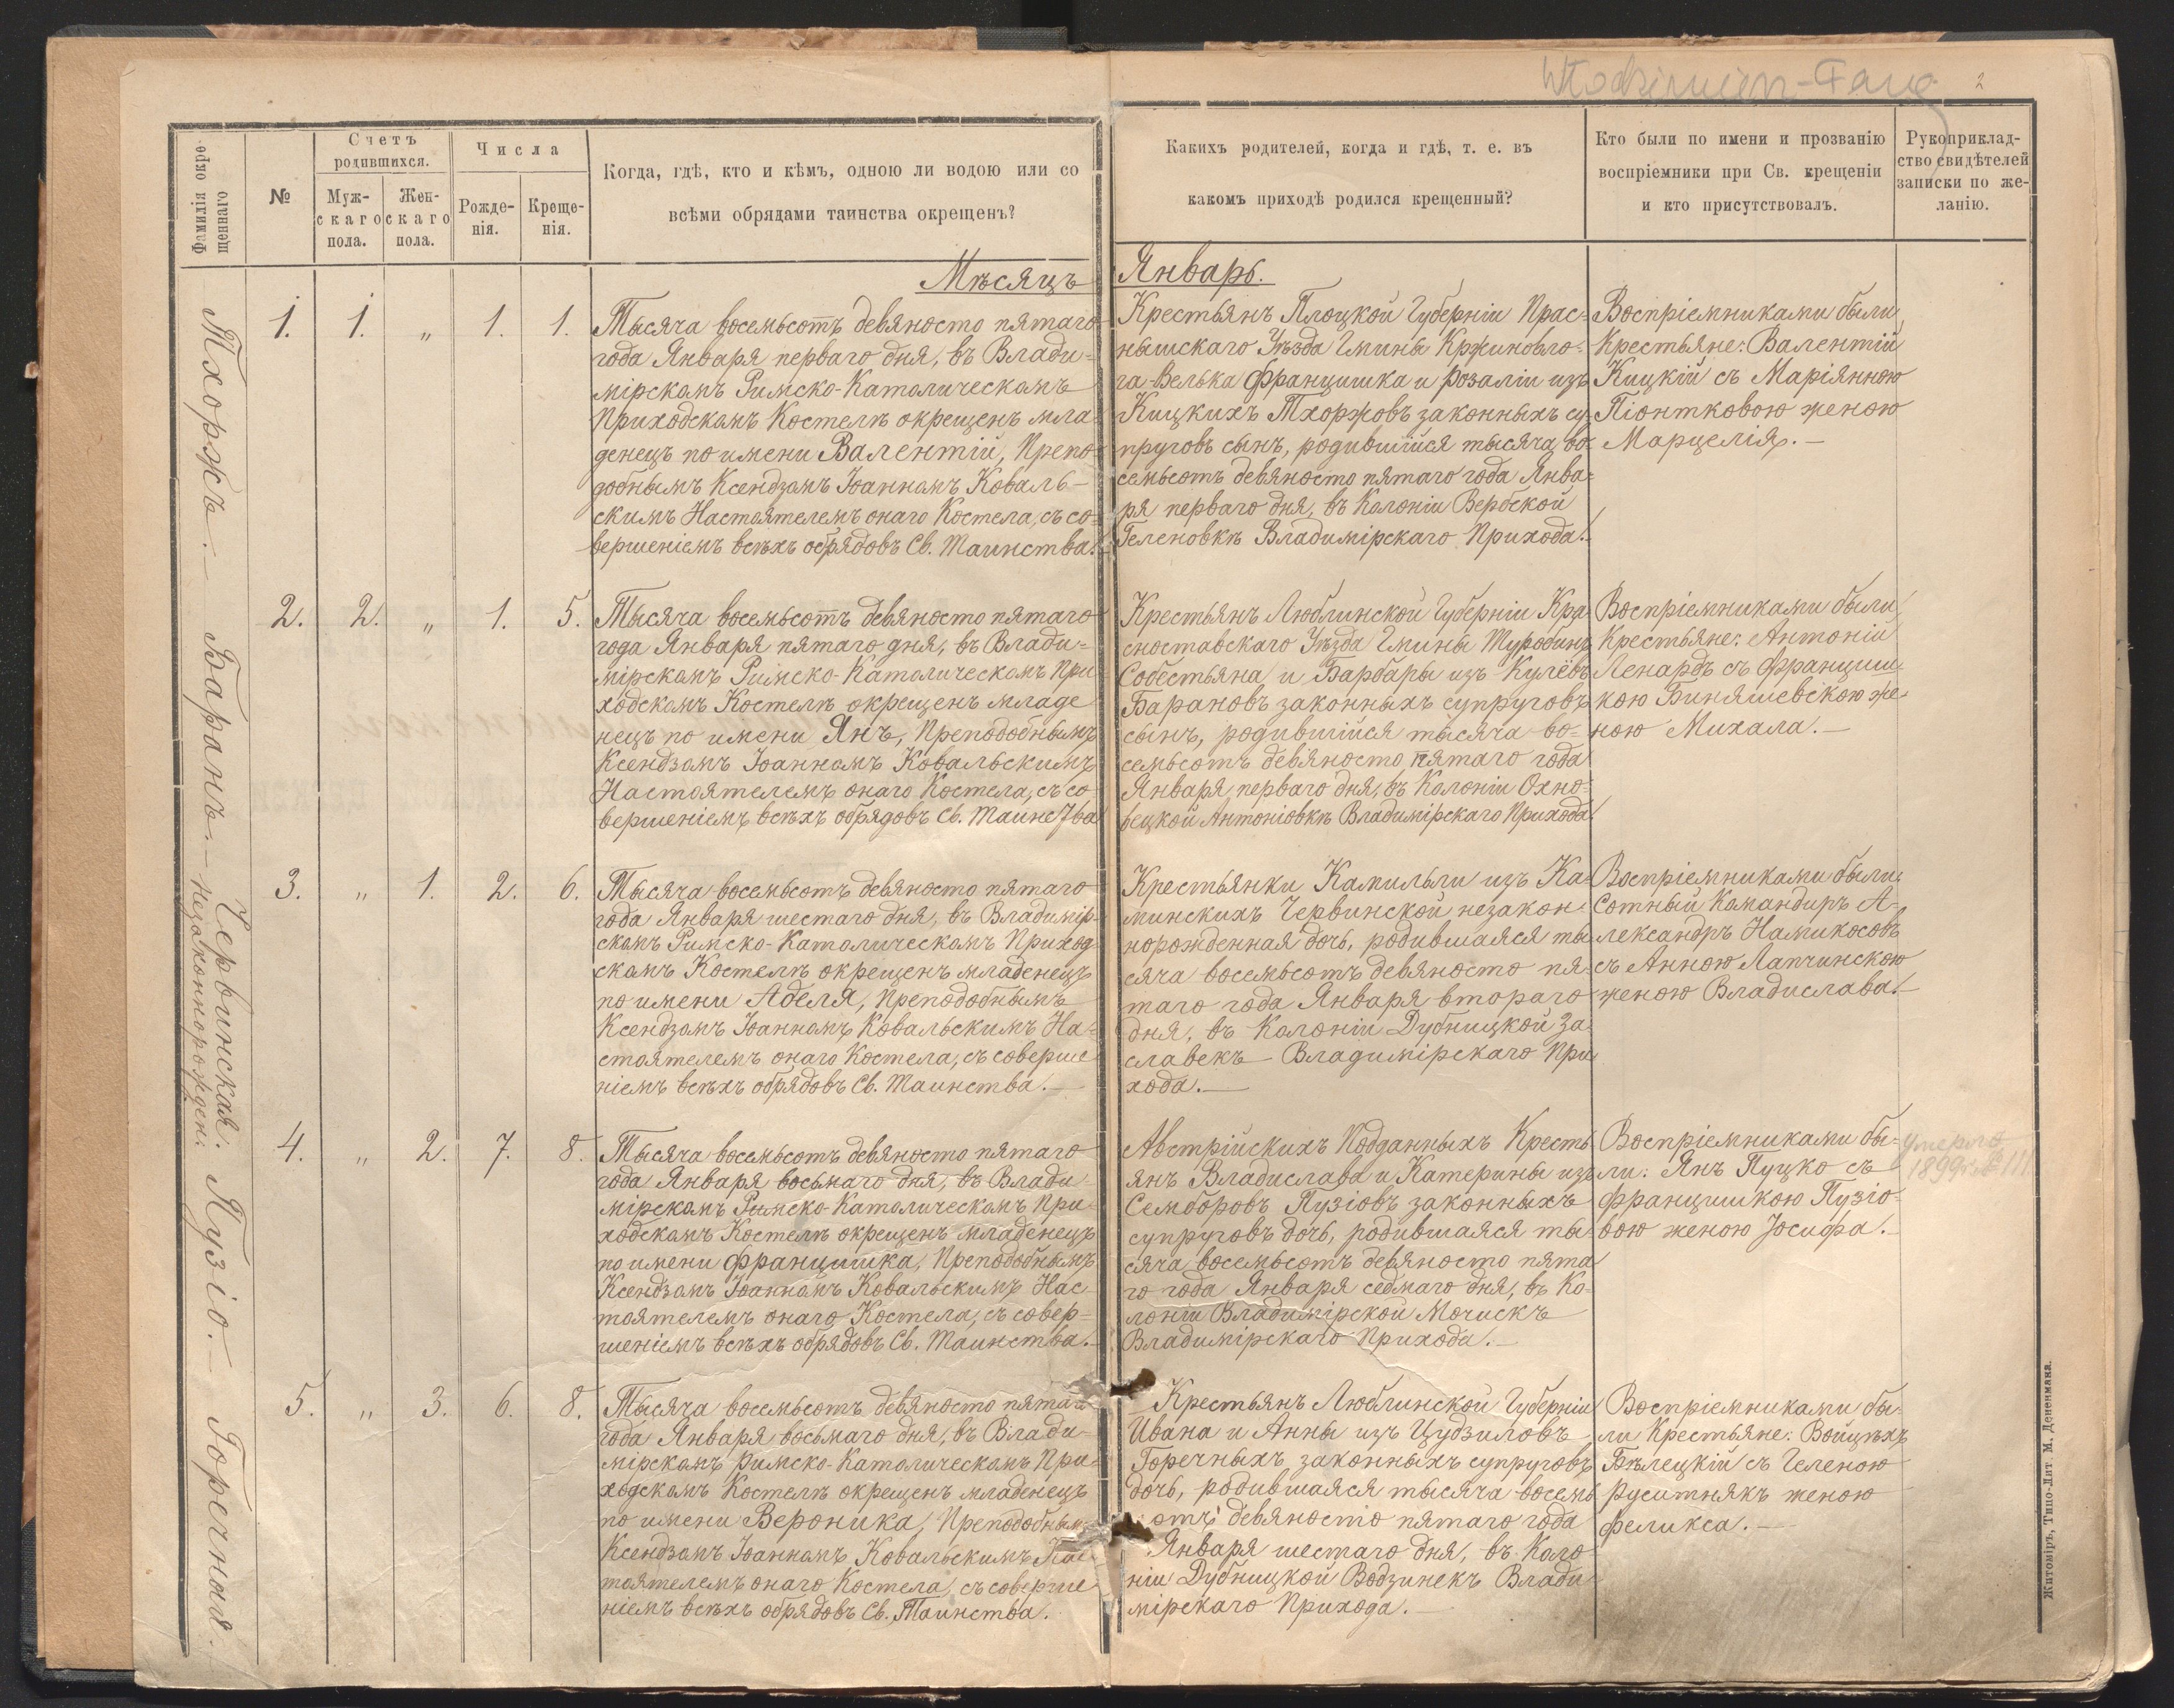 Włodzimierz
2
Фамилія окре-
щеннаго
№
Счетъ
родившихся.
Муж-
скаго
пола.
Жен-
скаго
пола.
Числа
Рожде-
нія.
Креще-
нія.
Когда, гдѣ, кто и кѣмъ, одною ли водою или со
всѣми обрядами таинства окрещенъ?
Какихъ родителей, когда и гдѣ, т. е. въ
какомъ приходѣ родился крещенный?
Кто были по имени и прозванію
воспріемники при Св. крещеніи
и кто присутствовалъ.
Рукоприклад-
ство свидѣтелей
записки по же-
ланію.
Мѣсяцъ Январь.
Тхоржъ.
1. 1. „ 1. 1.
Тысяча восемьсотъ девяносто пятаго
года Января перваго дня, въ Влади-
мірскомъ Римско-Католическомъ
Приходскомъ Костелѣ окрещенъ мла-
денецъ по имени Валентій, Препо-
добнымъ Ксендзомъ Іоанномъ Коваль-
скимъ Настоятелемъ онаго Костела, съ со-
вершеніемъ всѣхъ обрядовъ Св. Таинства.
Крестьянъ Плоцкой Губерніи Прас-
нышскаго Уѣзда Гмины Кржиновло-
га-Велька Францишка и Розаліи изъ
Кицкихъ Тхоржовъ законныхъ су-
пруговъ сынъ, родившійся тысяча во-
семьсотъ девяносто пятаго года Янва-
ря перваго дня, въ Колоніи Вербской
Геленовкѣ Владимірскаго Прихода.
Воспріемниками были
Крестьяне: Валентій
Кицкій съ Маріянною
Піонтковою женою
Марцелія.
Баранъ.
2. 2. „ 1. 5.
Тысяча восемьсотъ девяносто пятаго
года Января пятаго дня, въ Влади-
мірскомъ Римско-Католическомъ При-
ходскомъ Костелѣ окрещенъ младе
нецъ по имени Янъ, Преподобнымъ
Ксендзомъ Іоанномъ Ковальскимъ
Настоятелемъ онаго Костела, съ со
вершеніемъ всѣхъ обрядовъ Св. Таинства
Крестьянъ Люблинской Губерніи Кра-
сноставскаго Уѣзда Гмины Туробинъ
Собестьяна и Барбары изъ Кулёвъ
Барановъ законныхъ супруговъ
сынъ, родившійся тысяча во-
семьсотъ девяносто пятаго года
Января перваго дня, въ Колоніи Охно-
вецкой Антоніовкѣ Владимірскаго Прихода.
Воспріемниками были
Крестьяне: Антоній
Ленардъ съ Францишь
кою Биняшевскою же-
ною Михала.
Червинская.
незаконнорожден.
3. „ 1. 2. 6.
Тысяча восемьсотъ девяносто пятаго
года Января шестаго дня, въ Владимір-
скомъ Римско-Католическомъ Приход
скомъ Костелѣ окрещенъ младенецъ
по имени Аделя, Преподобнымъ
Ксендзомъ Іоанномъ Ковальскимъ На-
стоятелемъ онаго Костела, съ соверше
ніемъ всѣхъ обрядовъ Св. Таинства.
Крестьянки Камильли изъ Ка-
минскихъ Червинской незакон-
норожденная дочь, родившаяся ты
сяча восемьсотъ девяносто пя-
таго года Января втораго
дня, въ Колоніи Дубницкой За-
славекъ Владимірскаго При
хода.
Воспріемниками были:
Сотный Командиръ А-
лександръ Намикосовъ
съ Анною Лапчинскою
женою Владислава.
Пузіо.
4. „ 2. 7. 8.
Тысяча восемьсотъ девяносто пятаго
года Января восьмаго дня, въ Влади
мірскомъ Римско-Католическомъ При-
ходскомъ Костелѣ окрещенъ младенецъ
по имени Францишка, Преподобнымъ
Ксендзомъ Іоанномъ Ковальскимъ Нас
тоятелемъ онаго Костела, съ совер-
шеніемъ всѣхъ обрядовъ Св. Таинства.
Австрійскихъ Подданныхъ Кресть
янъ Владислава и Катерины изъ
Семборовъ Пузіовъ законныхъ
супруговъ дочь, родившаяся ты-
сяча восемьсотъ девяносто пята
го года Января седмаго дня, въ Ко-
лоніи Владимірской Мочискъ
Владимірскаго Прихода.
Воспріемниками бы-
ли: Янъ Пуцко съ
Францишкою Пузіо-
вою женою Іосифа.
Умерла
1899 г. № 111
Горечная.
5. „ 3. 6. 8.
Тысяча восемьсотъ девяносто пятаго
года Января восьмаго дня, въ Влади-
мірскомъ Римско-Католическомъ При-
ходскомъ Костелѣ окрещенъ младенецъ
по имени Вероника, Преподобнымъ
Ксендзомъ Іоанномъ Ковальскимъ Нас
тоятелемъ онаго Костела, съ соверше
ніемъ всѣхъ обрядовъ Св. Таинства.
Крестьянъ Люблинской Губерніи
Ивана и Анны изъ Цудзиловъ
Горечныхъ, законныхъ супруговъ
дочь, родившаяся тысяча восемь
отъ девяносто пятаго года
Января шестаго дня, въ Коло
ніи Дубницкой Водзинекъ Влади
мірскаго Прихода.
Воспріемниками бы-
ли Крестьяне: Войцѣхъ
Бѣлецкій съ Геленою
Руситнякъ женою
Феликса.
Житоміръ, Типо-Лит М. Дененмана.